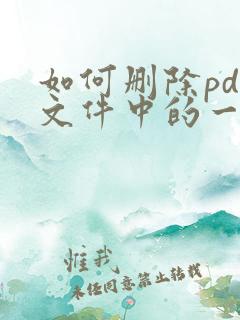 如何删除pd
文件中的一
惟我
未经同意禁止转载